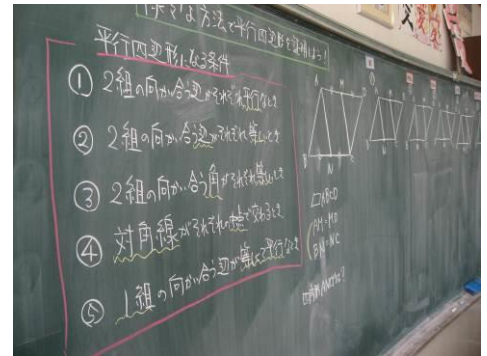 な方法で平行四辺形を証明しよう!
平行四辺形になる条件
① 2組の向かい合う辺がそれぞれ平行なとき
② 2組の向かい合う辺がそれぞれ等しいとき
③ 2組の向かい合う角がそれぞれ等しいとき
④ 対角線がそれぞれの で交わるとき
⑤ 1組の向かい合う辺が等しくて平行なとき
A M D
B N C
□ABCD
AM=MD
BN=NC